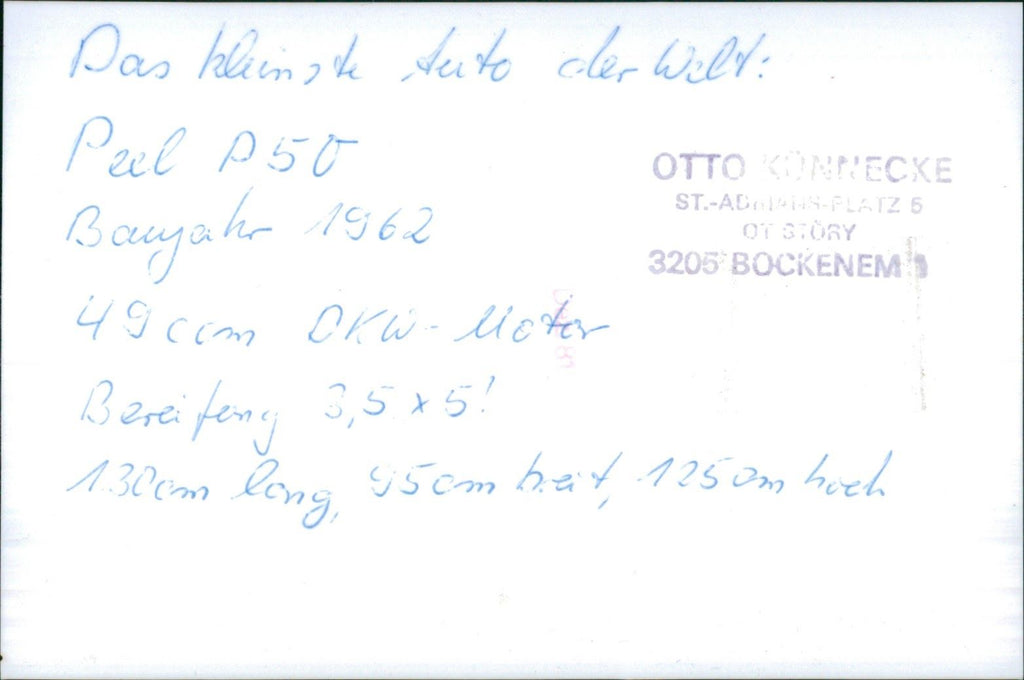 Das kleinste Auto der Welt:
Peel P50
Baujahr 1962
49ccm DKW-Motor
Bereifung 3,5 x 5!
130cm lang, 95cm breit, 125cm hoch
OTTO KÜNNECKE
ST.-ADRIANS-PLATZ 5
OT STÖRY
3205 BOCKENEM 1